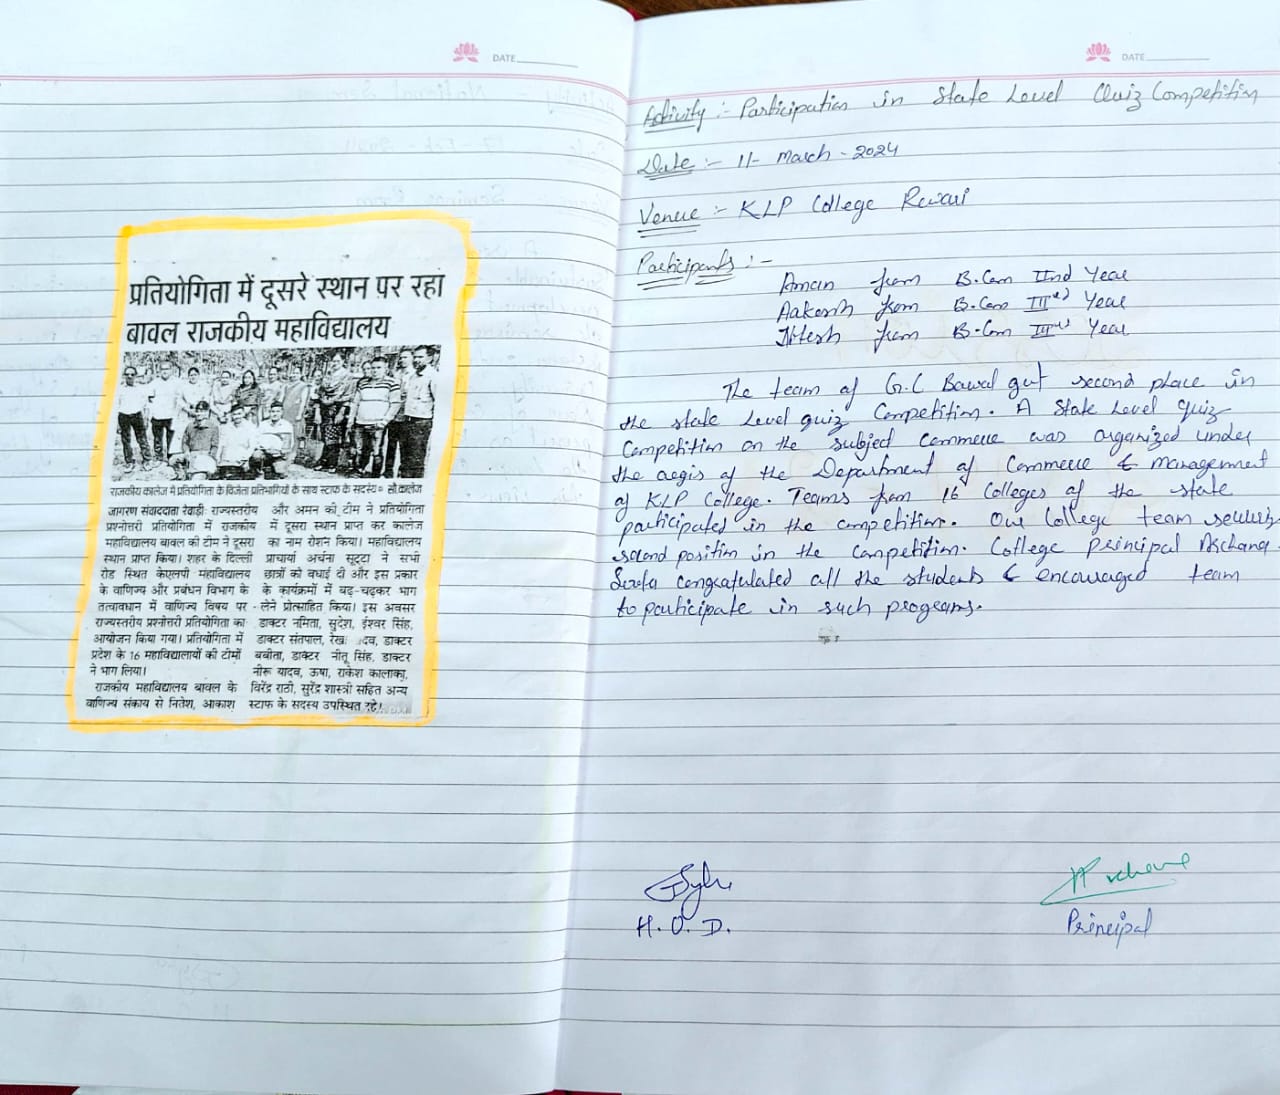 DATE
प्रतियोगिता में दूसरे स्थान पर रहा
बावल राजकीय महाविद्यालय
राजकीय कालेज में प्रतियोगिता के विजेता प्रतिभागियों के साथ स्टाफ के सदस्य॰ सौ.कालेज
जागरण संवाददाता रेवाड़ीः राज्यस्तरीय
प्रश्नोत्तरी प्रतियोगिता में राजकीय
महाविद्यालय बावल की टीम ने दूसरा
स्थान प्राप्त किया। शहर के दिल्ली
रोड स्थित केएलपी महाविद्यालय
के वाणिज्य और प्रबंधन विभाग के
तत्वावधान में वाणिज्य विषय पर
राज्यस्तरीय प्रश्नोत्तरी प्रतियोगिता का
आयोजन किया गया। प्रतियोगिता में
प्रदेश के 16 महाविद्यालयों की टीमों
ने भाग लिया।
राजकीय महाविद्यालय बावल के
वाणिज्य संकाय से नितेश, आकाश
और अमन की टीम ने प्रतियोगिता
में दूसरा स्थान प्राप्त कर कालेज
का नाम रोशन किया। महाविद्यालय
प्राचार्या अर्चना सूटटा ने सभी
छात्रों को बधाई दी और इस प्रकार
के कार्यक्रमों में बढ़-चढ़कर भाग
लेने प्रोत्साहित किया। इस अवसर
डाक्टर नमिता, सुदेश, ईश्वर सिंह,
डाक्टर संतपाल, रेखा डाक्टर
बबीता, डाक्टर नीतू सिंह, डाक्टर
नीरू यादव, ऊषा, राकेश कालाका,
विरेंद्र राठी, सुरेंद्र शास्त्री सहित अन्य
स्टाफ के सदस्य उपस्थित रहे।
DATE
Activity :- Participation in State Level Quiz Competition
Date :- 11- March - 2024
Venue :- KLP College Rewari
Participants :-
Aman from B.Com IInd Year
Aakash from B.Com IIIrd Year
Nitesh from B.Com IIIrd Year
The team of G.C Bawal got second place in
the state Level quiz Competition. A State Level quiz
Competition on the subject Commerce was organized under
the aegis of the Department of Commerce & management
of KLP College. Teams from 16 Colleges of the state
participated in the competition. Our College team
second position in the Competition. College principal Archana
congratulated all the students & encouraged team
to participate in such programs.
H. O. D.
Archana
Principal